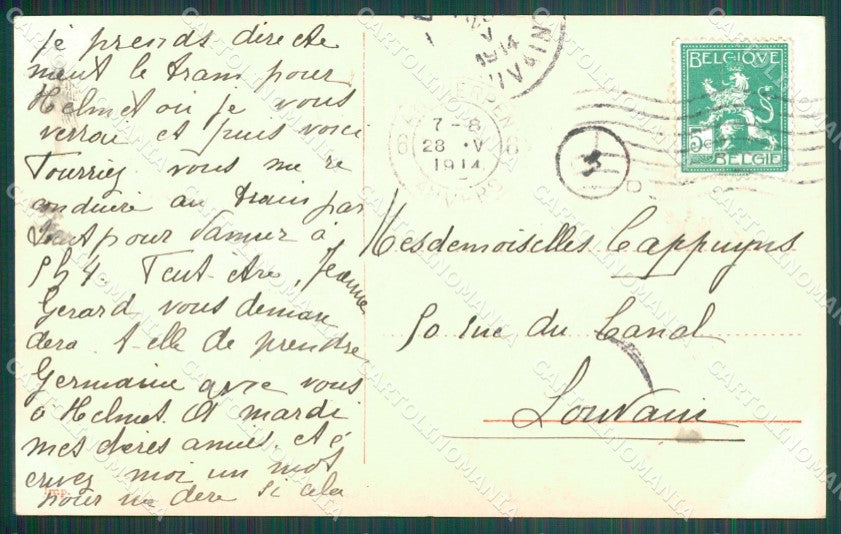 je prends directe
ment le tram pour
Helmet où je vous
verrai et puis voici
vous me re
au train par
pour Namur à
5h 4. Peut-être Jeanne
Gérard vous deman
dera t-elle de prendre
Germaine avec vous
à Helmet. A mardi
mes chères amies et é
crivez moi un mot
pour me dire si cela
1914
ANTWERPEN
6 7-8 6
28 · V
1914
ANVERS
BELGIQUE
5c
BELGIE
Mesdemoiselles Cappuyns
50 rue du Canal
Louvain
Imp.
CARTOLINOMANIA